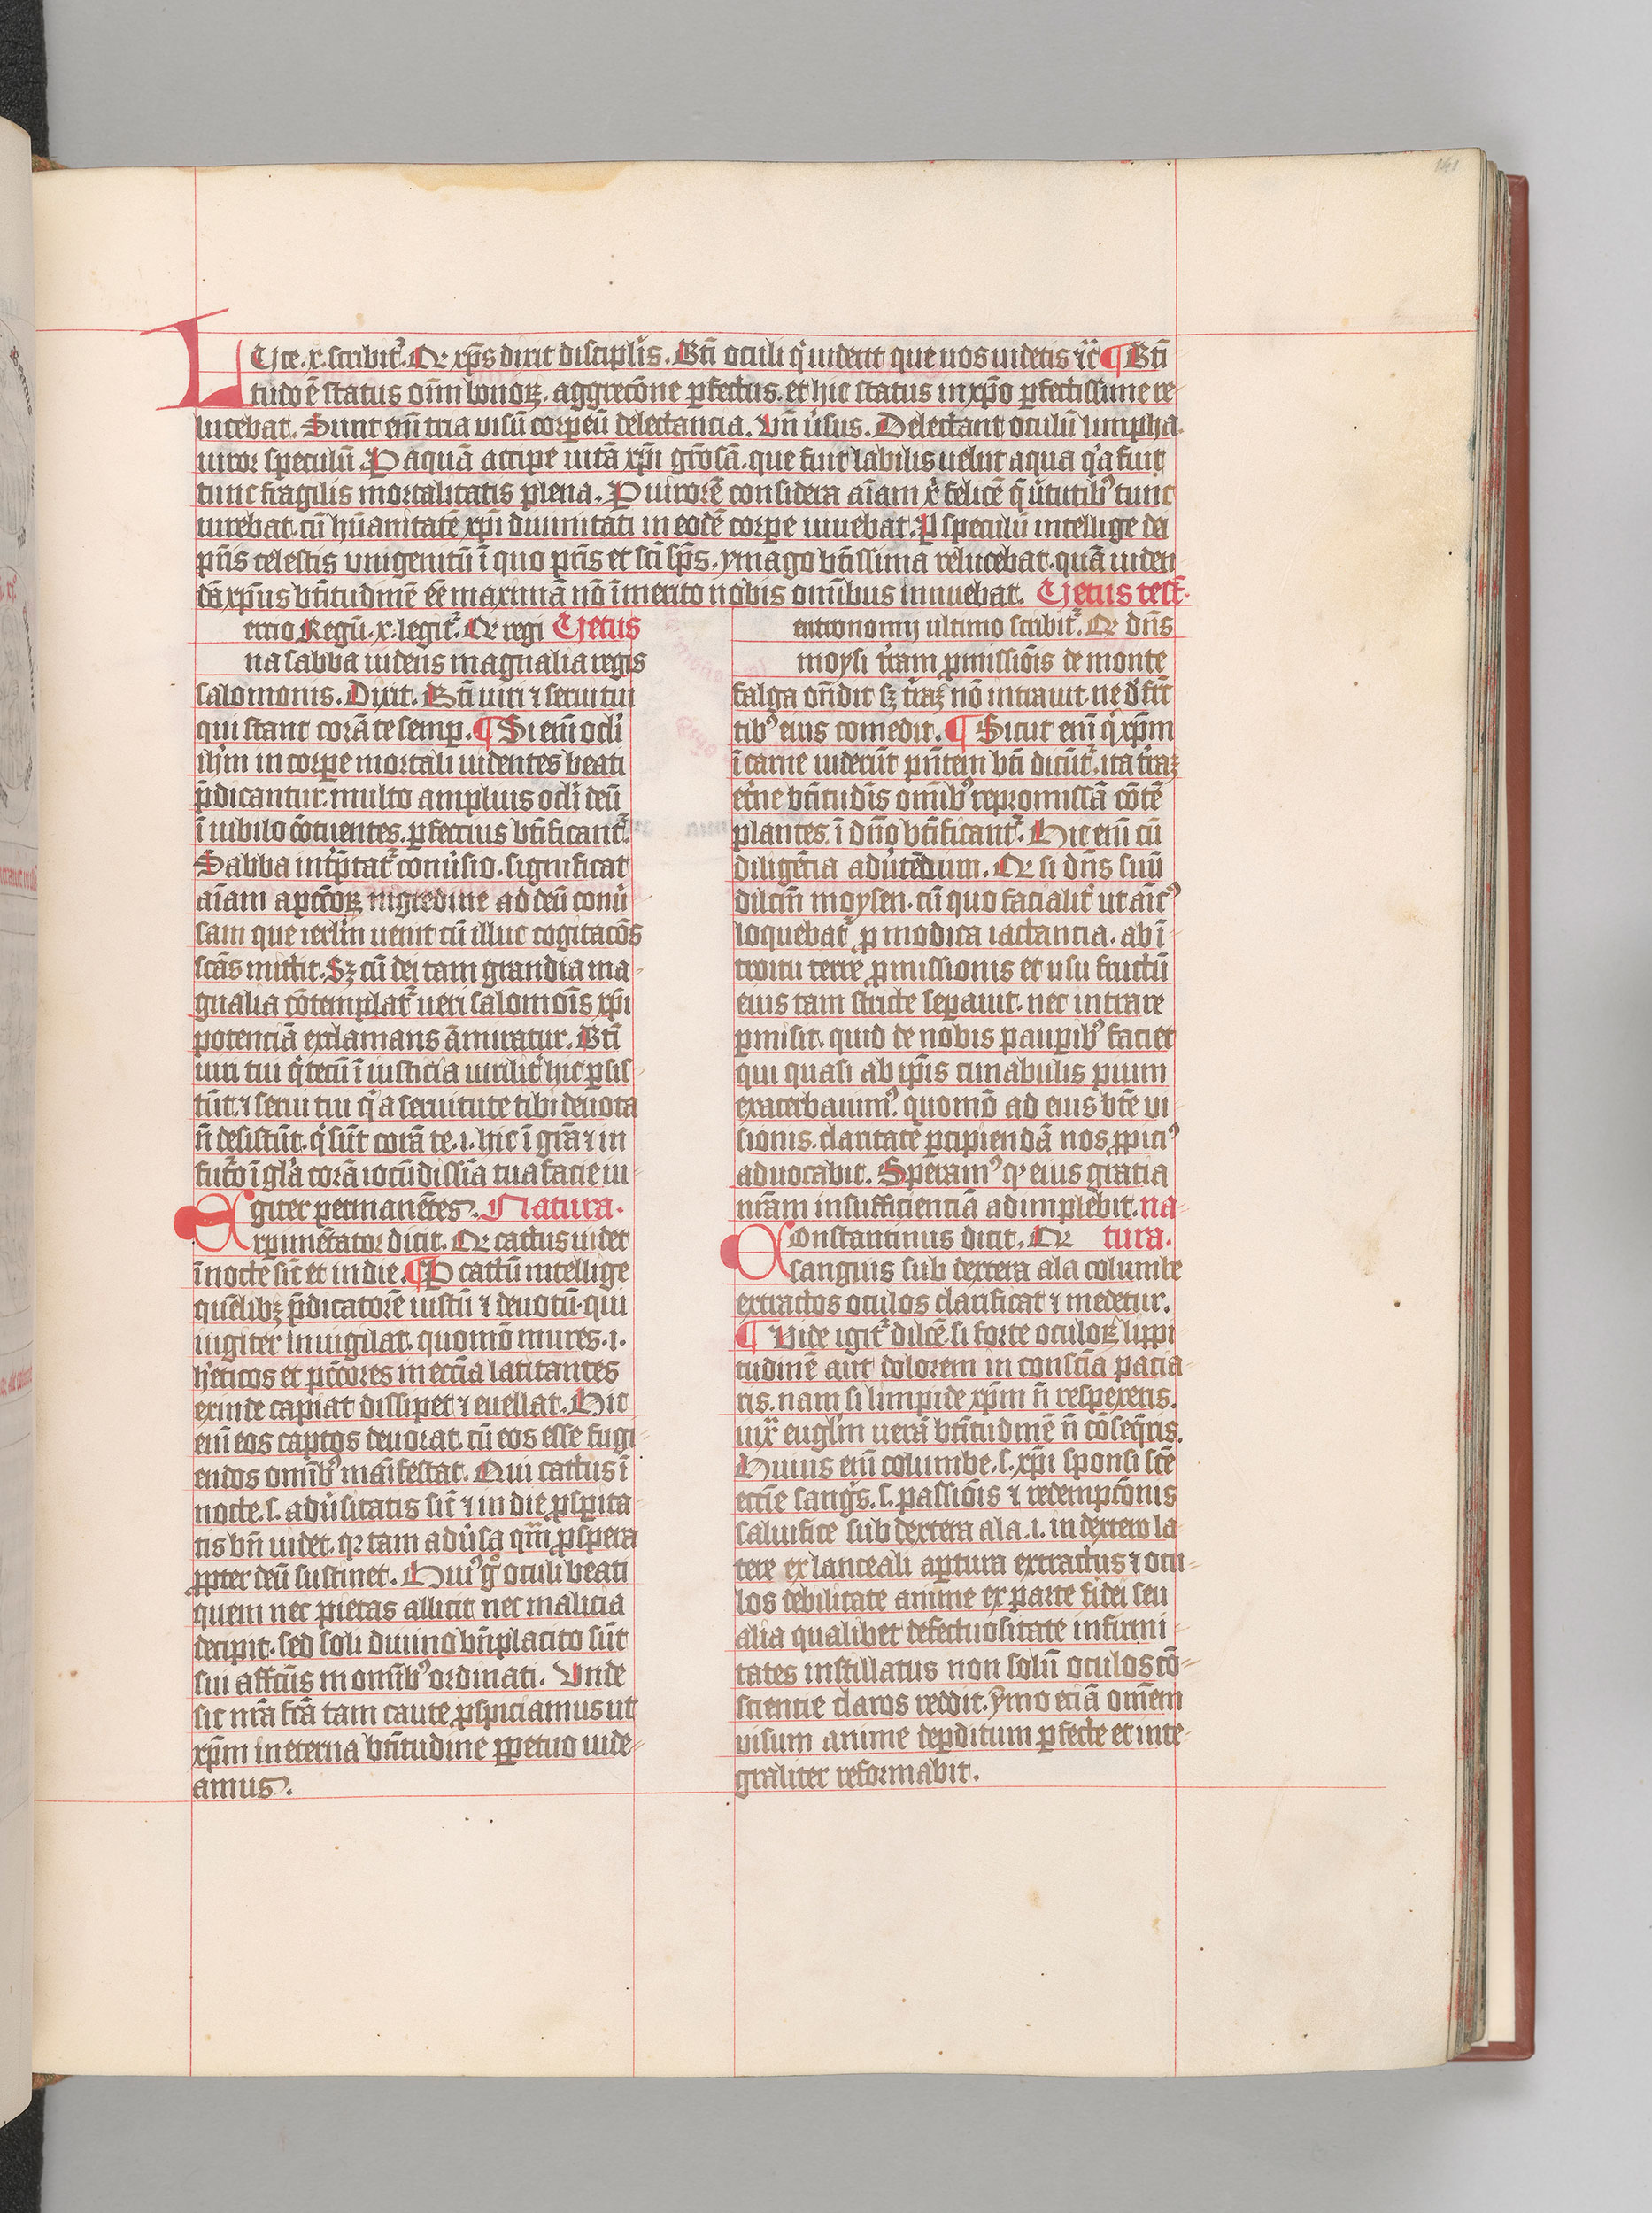 141
LUce .x. scribit᷑. Qr xp̄s dixit discipl̓is. Bti̅ oculi q̓ uidert̅ que uos uidetis ⁊c̅ ¶ Bti̅
tudo ē status om̅i bonoꝝ. aggregōne ꝑfectus. et hic status in xp̄o ꝑfectissime re-
lucebat. Sunt eni̅ tria visū corꝑeū delectancia. Vn̄ ūsus. Delectant oculū limpha.
uitor speculū. P aquā accipe uitā xp̄i gr̄osā. que fuit labilis uelut aqua q̓a fuit
tunc fragilis mortalitatis plena. P uirorē considera aīam x̄ felicē q̄ ūtutib᷒ tunc
uirebat. cū hūanitatē xp̄i diuinitati in eodē corꝑe uiuebat. P speculū intellige dei
pr̄is celestis vnigenitū ī quo pr̄is et sc̄i sp̄s. ymago bt̄issima relucebat. quā uiden
dā xp̄us bt̄itudinē eē maximā nō īmerito nobis omībus innuebat. Vetus test̄.
ercio Regū .x. legit᷑. Qr regi Vetus
na sabba uidens magnalia regis
salomonis. Dixit. Bt̄i uiri ⁊ serui tui
qui stant corā te semp. ¶ Si eni̅ ocl̓i
ih̄m in corꝑe mortali uidentes beati
p̄dicantur. multo amplius ocl̓i deū
ī iubilo ōtuentes. ꝑfectius bt̄ificant᷑.
Sabba int̓p̄tat᷑ conūsio. significat
aīam a pcc̄oꝝ nigredine ad deū conū
sam que ierl̄m uenit cū illuc cogitacōs
sc̄as mittit. Sꝫ cū dei tam grandia ma-
gnalia cōtemplat᷑ ueri salomōis xp̄i
potenciā exclamans āmiratur. Bt̄i
uiri tui q̓ tecū ī iusticia uirilit̓ hic ꝑsis-
tūt. ⁊ serui tui q̓ a seruitute tibi deuota
n̄ desistūt. q̓ sūt corā te .i. hic ī gr̄a ⁊ in
fut̓o ī gl̄a corā iocūdissīa tua facie iu-
giter permanētes. Natura.
Experimētator dicit. Qr cattus uidet
ī nocte sic̄ et in die. ¶ P cattū intellige
quēlibꝫ p̄dicatorē iustū ⁊ deuotū. qui
iugiter inuigilat. quomō mures .i.
h̓eticos et pc̄c̄ores in eccīa latitantes
exinde capiat dissipet ⁊ euellat. Hic
eni̅ eos captos deuorat. cū eos esse fugi-
endos omīb᷒ māifestat. Qui cattus ī
nocte .s. adūsitatis sic̄ ⁊ in die ꝓsꝑita-
tis bn̄ uidet. qꝛ tam adūsa qm̄ ꝓspera
ꝓpter deū sustinet. Hui᷒ g̊ oculi beati
quem nec pietas allicit nec malicia
decipit. sed soli diuino bn̄placito sūt
sui affctūs in omīb᷒ ordinati. Vnde
sic nr̄a fc̄ā tam caute ꝓspiciamus ut
xp̄m in eterna bt̄itudine ꝑpetuo uide-
amus.
eutronomij ultimo scribit᷑. Qr dn̄s
moysi t̓ram ꝓmissiōis de monte
falga on̄dit sꝫ t̓raꝫ nō intrauit. ne d̓ fru̅c
tib᷒ eius comedit. ¶ Sicut eni̅ q̓ xp̄m
ī carne uiderūt pn̄tem bt̄i dicūt᷑. ita t̓raꝫ
et̓ne bt̄itudīs omīb᷒ repromissā cōtē
plantes. ī dn̄o bt̄ificant᷑. Hic eni̅ cū
diligētia adūtēdum. Qr si dn̄s suū
dilcm̄ moysen. cū quo facialit̓ ut aīc᷒
loquebat᷑ ꝑ modica iactancia. ab ī-
troitu terre ꝓmissionis et usu fructū
eius tam stricte seꝑauit. nec intrare
ꝑmisit. quid de nobis pauꝑib᷒ faciet
qui quasi ab ip̄is cunabulis pium
exacerbauim᷒. quomō ad eius bt̄e vi-
sionis. claritatē ꝑcipiendā nos ꝓpici᷒
aduocabit. Speram᷒ qꝛ eius gratia
nr̄am insufficienciā adimplebit. na-
Constantinus dicit. Qr tura.
sanguis sub dextera ala columbe
extractos oculos clarificat ⁊ medetur.
¶ Vide igit᷑ dilcē. si forte oculoꝝ lippi-
tudinē aut dolorem in conscīa pacia-
ris. nam si limpide xp̄m n̄ respexeris.
uix eugl̄m uerā bt̄itudinē n̄ cōseq̄ris.
Huius eni̅ columbe .s. xp̄i sponsi sc̄e
eccīe sang̓s. s. passiōis ⁊ redempcōnis
saluifice sub dextera ala .i. in dextero la-
tere ex lanceali aꝑtura extractus ⁊ ocu-
los debilitate anime ex parte fidei seu
alia qualibet defectuositate infirmi-
tates instillatus non solū oculos cō-
scientie claros reddit. ymo eciā omēm
visum anime deꝑditum ꝑfecte et inte-
graliter reformabit.